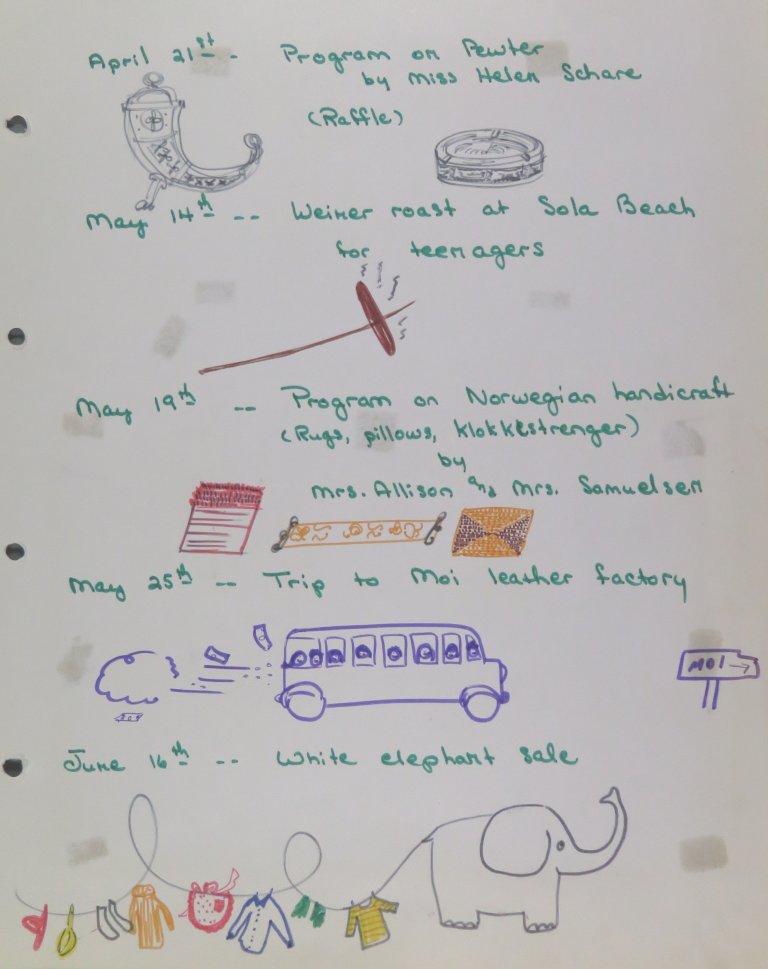 April 21st - Program on Pewter
by Miss Helen Schare
(Raffle)
May 14th -- Weiner roast at Sola Beach
for teenagers
May 19th -- Program on Norwegian handicraft
(Rugs, pillows, klokkestrenger)
by
Mrs. Allison and Mrs. Samuelsen
May 25th -- Trip to Moi leather factory
MOI →
June 16th -- White elephant sale